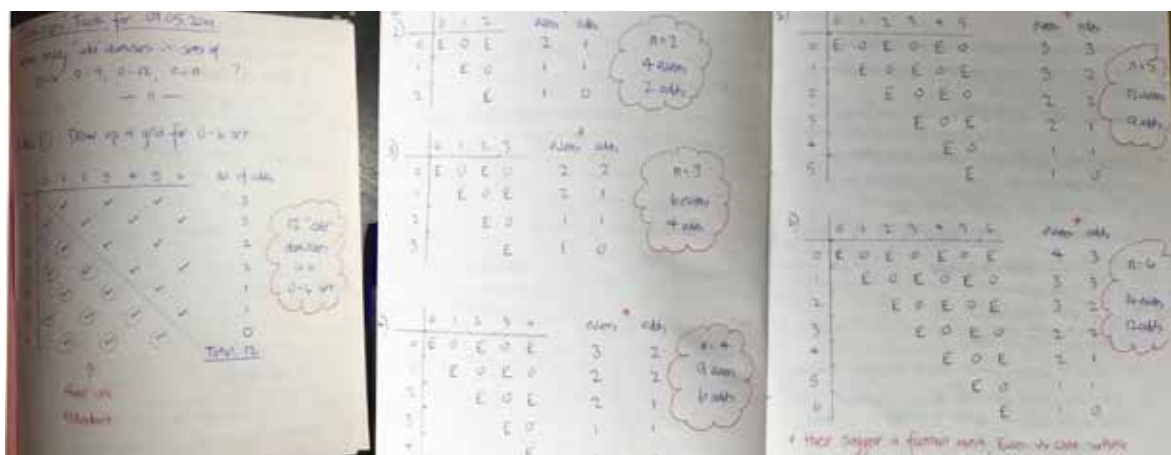 for 09.05.2019
how many odd dominoes in sets of
0-9, 0-12, ?
— " —
Draw up a grid for 0-6 set
0 1 2 3 4 5 6 No. of odds
✓ ✓ ✓ 3
✓ ✓ ✓ 3
✓ ✓ ✓ 2
✓ ✓ ✓ ✓ 2
✓ ✓ ✓ ✓ 1
✓ ✓ ✓ 1
✓ ✓ ✓ 0
Total 12
12 "odd"
dominoes
0-6 set
these are
redundant
2) 0 1 2 evens odds
0 E O E 2 1
1 E O 1 1
2 E 1 0
n=2
4 evens
2 odds
3) 0 1 2 3 evens odds
0 E O E O 2 2
1 E O E 2 1
2 E O 1 1
3 E 1 0
n=3
6 evens
4 odds
4) 0 1 2 3 4 evens odds
0 E O E O E 3 2
1 E O E O 2 2
2 E O E 2 1
3 E O 1 1
4 E
n=4
9 evens
6 odds
5) 0 1 2 3 4 5 evens odds
0 E O E O E O 3 3
1 E O E O E 3 2
2 E O E O 2 2
3 E O E 2 1
4 E O 1 1
5 E 1 0
n=5
12 evens
9 odds
6) 0 1 2 3 4 5 6 evens odds
0 E O E O E O E 4 3
1 E O E O E O 3 3
2 E O E O E 3 2
3 E O E O 2 2
4 E O E 2 1
5 E O 1 1
6 E 1 0
n=6
16 evens
12 odds
* these suggest a further